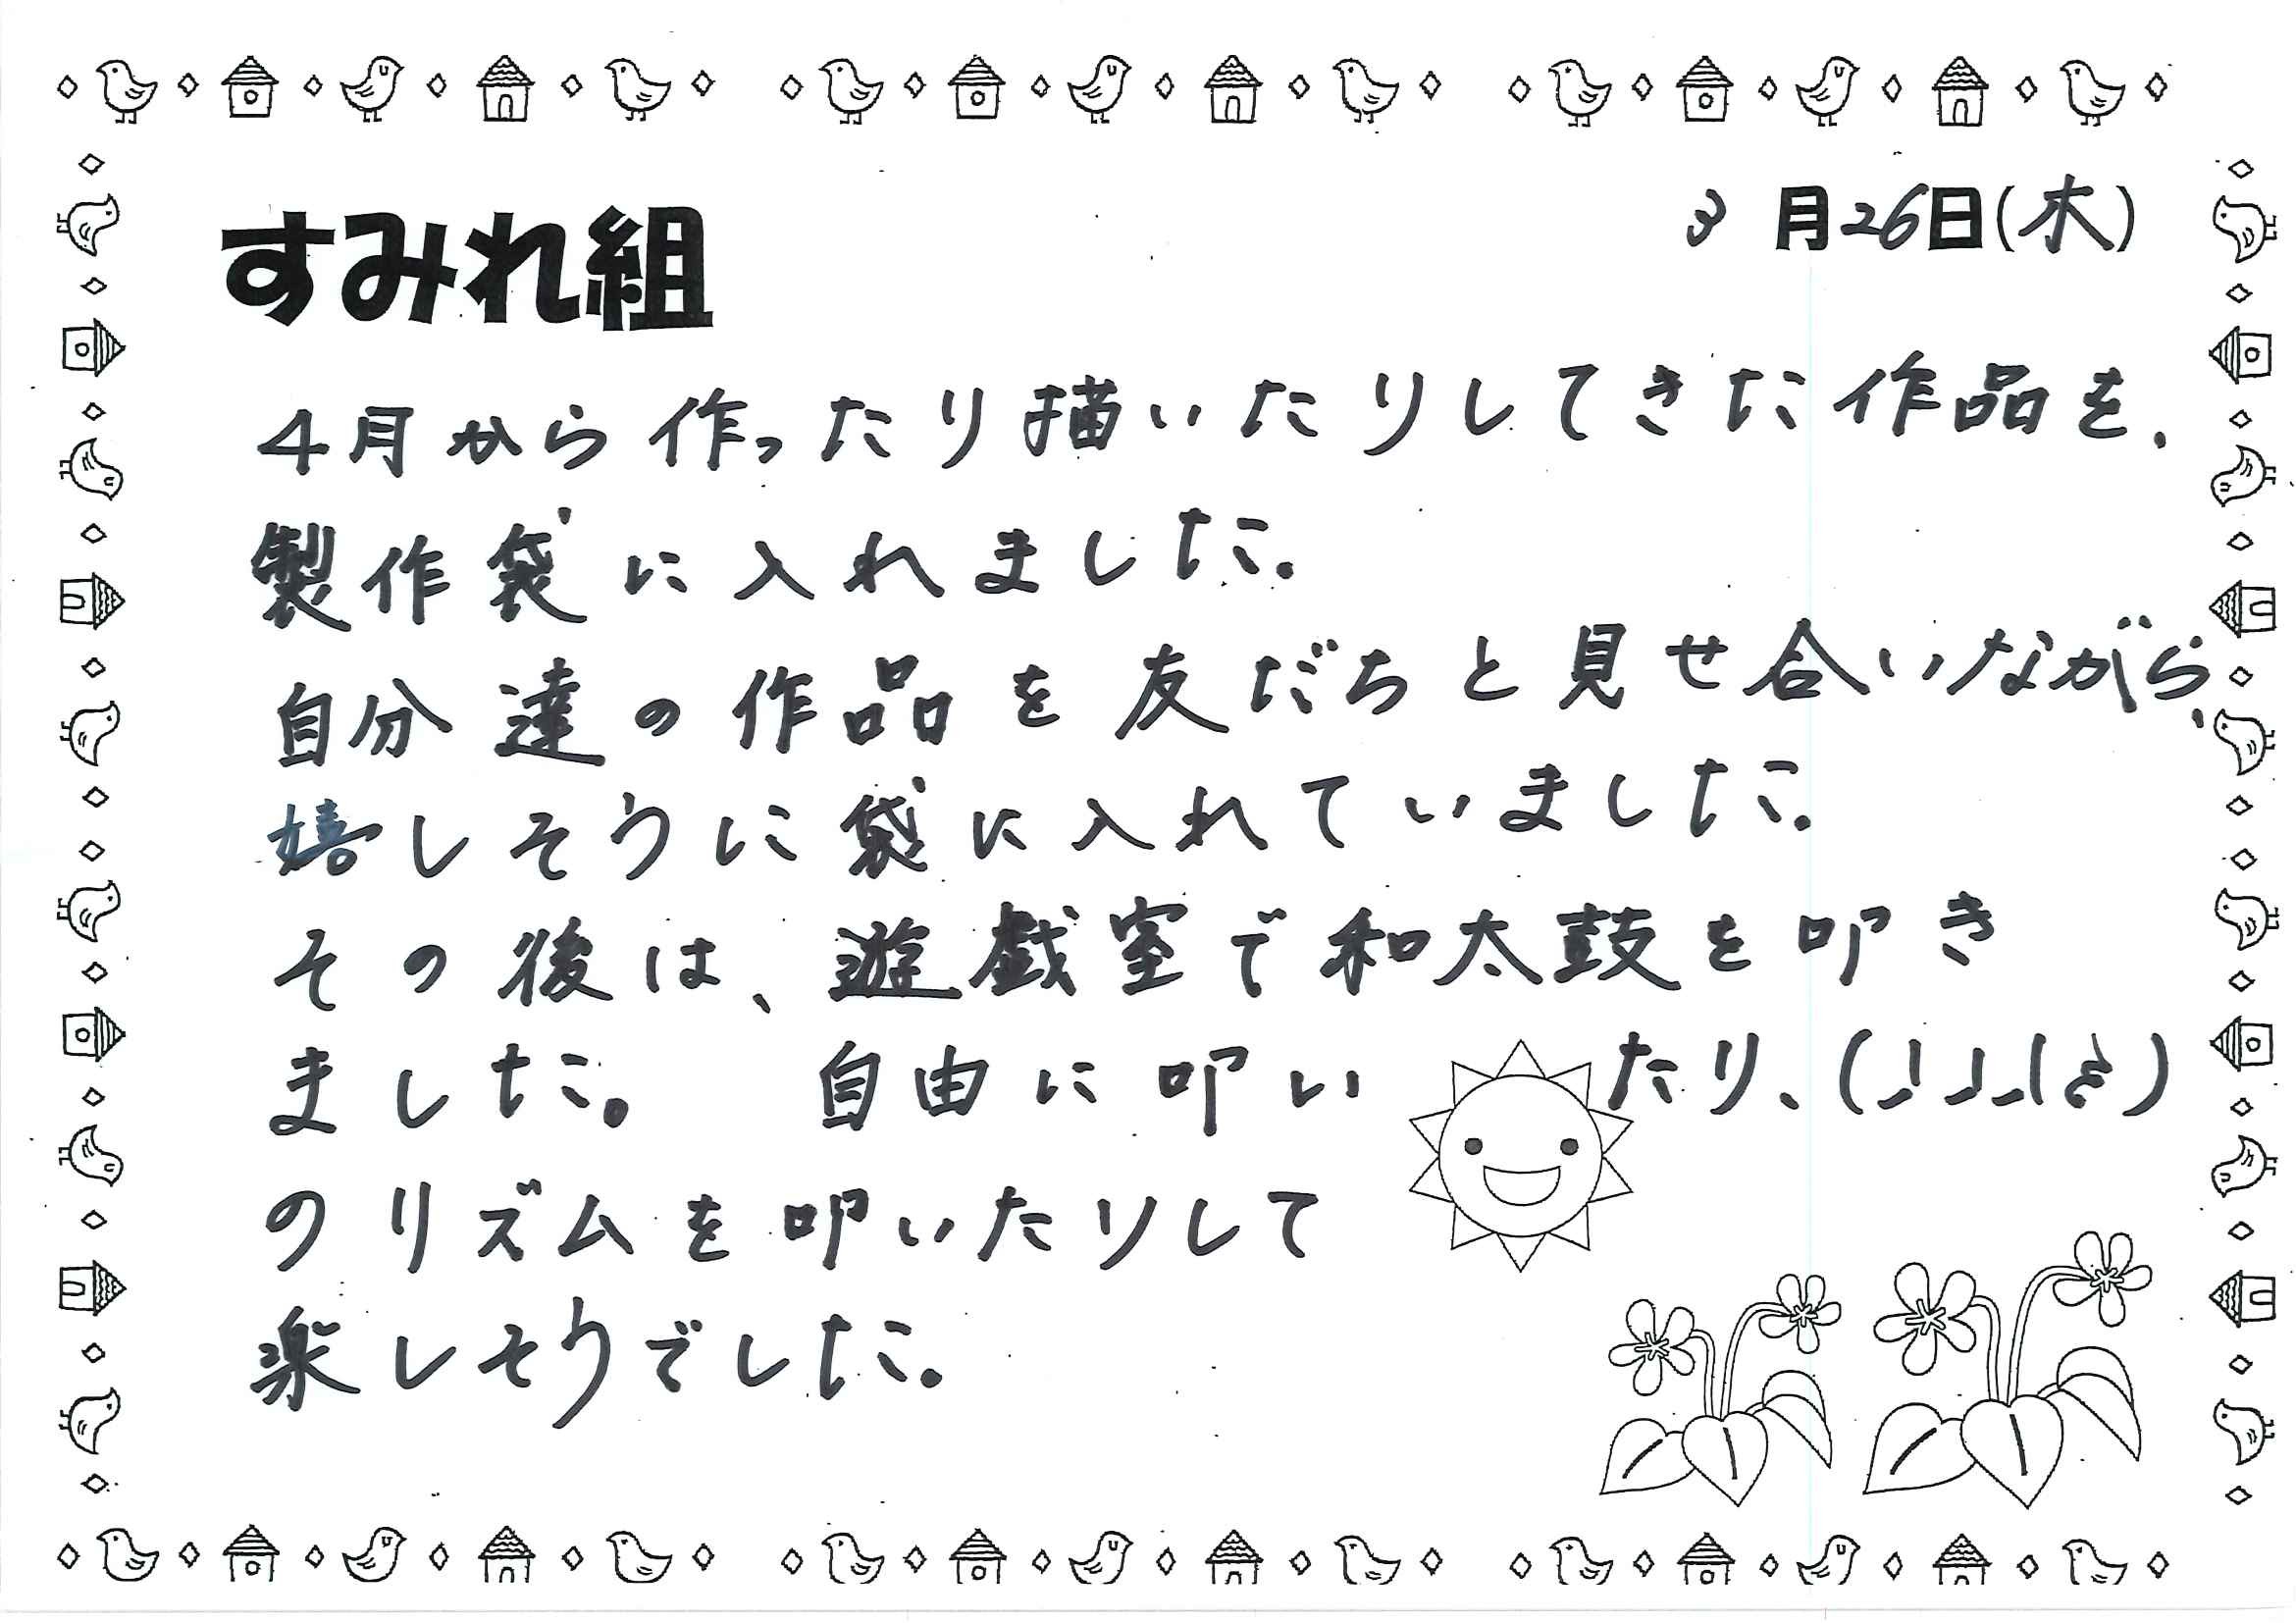 3月26日(木)
すみれ組
4月から作ったり描いたりしてきた作品を、
製作袋に入れました。
自分達の作品を友だちと見せ合いながら、
嬉しそうに袋に入れていました。
その後は、遊戯室で和太鼓を叩き
ました。 自由に叩いたり、(♩♩♩𝄽)
のリズムを叩いたりして
楽しそうでした。